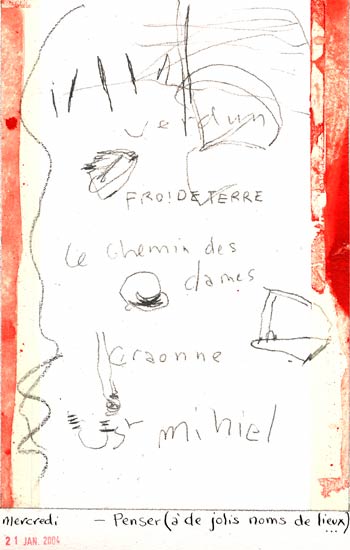 verdun
FROIDETERRE
Le Chemin des
dames
Craonne
St mihiel
mercredi – Penser (à de jolis noms de lieux)
...
21 JAN. 2004